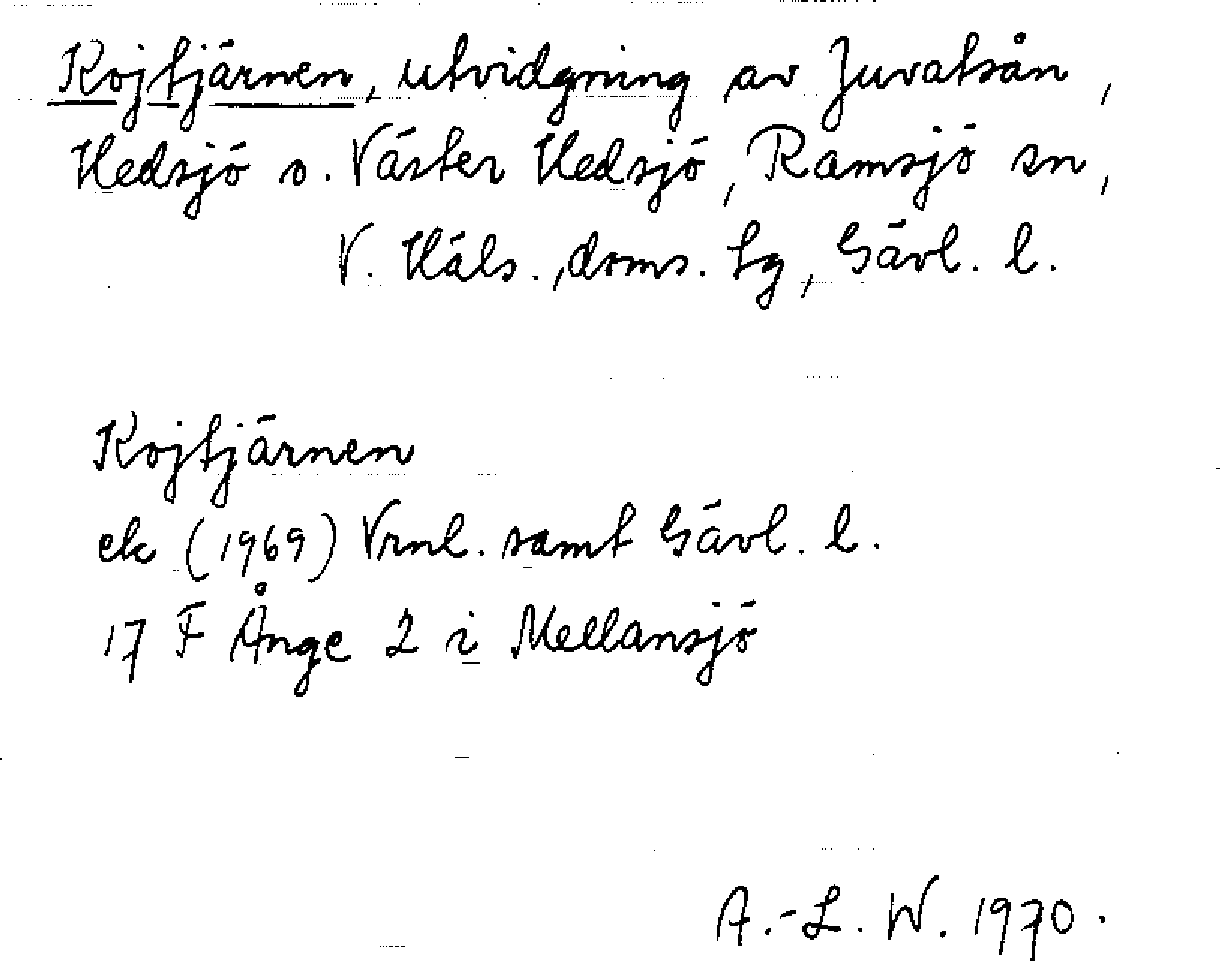 Kojtjärnen, utvidgning av Juvatsån,
Hedsjö o. Väster Hedsjö, Ramsjö sn,
V. Häls., doms. tg, Gävl. l.
Kojtjärnen
ek (1969) Vrml. samt Gävl. l.
17 F Ånge 2 i Mellansjö
A.-L. W. 1970.